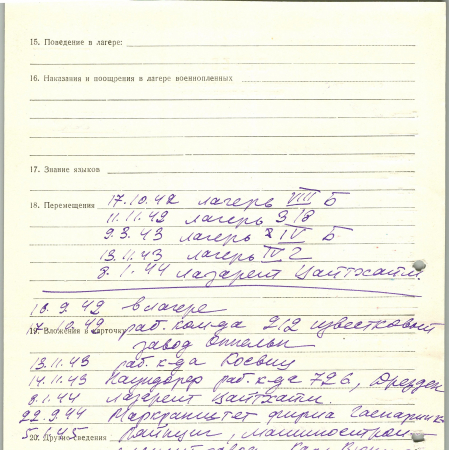 15. Поведение в лагере:
16. Наказания и поощрения в лагере военнопленных
17. Знание языков
18. Перемещения 17.10.42 лагерь VIII Б
11.11.42 лагерь 318
9.3.43 лагерь IV Б
13.11.43 лагерь IV
8.1.44 лазарет Цайтхайн.
18.9.42 в лагере
19. Вложение в карточку
17.10.42 раб. ком-да 212 известковый
завод Оппельн
13.11.43 раб. к-да
14.11.43 раб. к-да 726, Дрезден
8.1.44 лазарет Цайтхайн.
22.9.44 фирма
5.1.45 Лейпциг, машинострои-
20. Другие сведения
завод